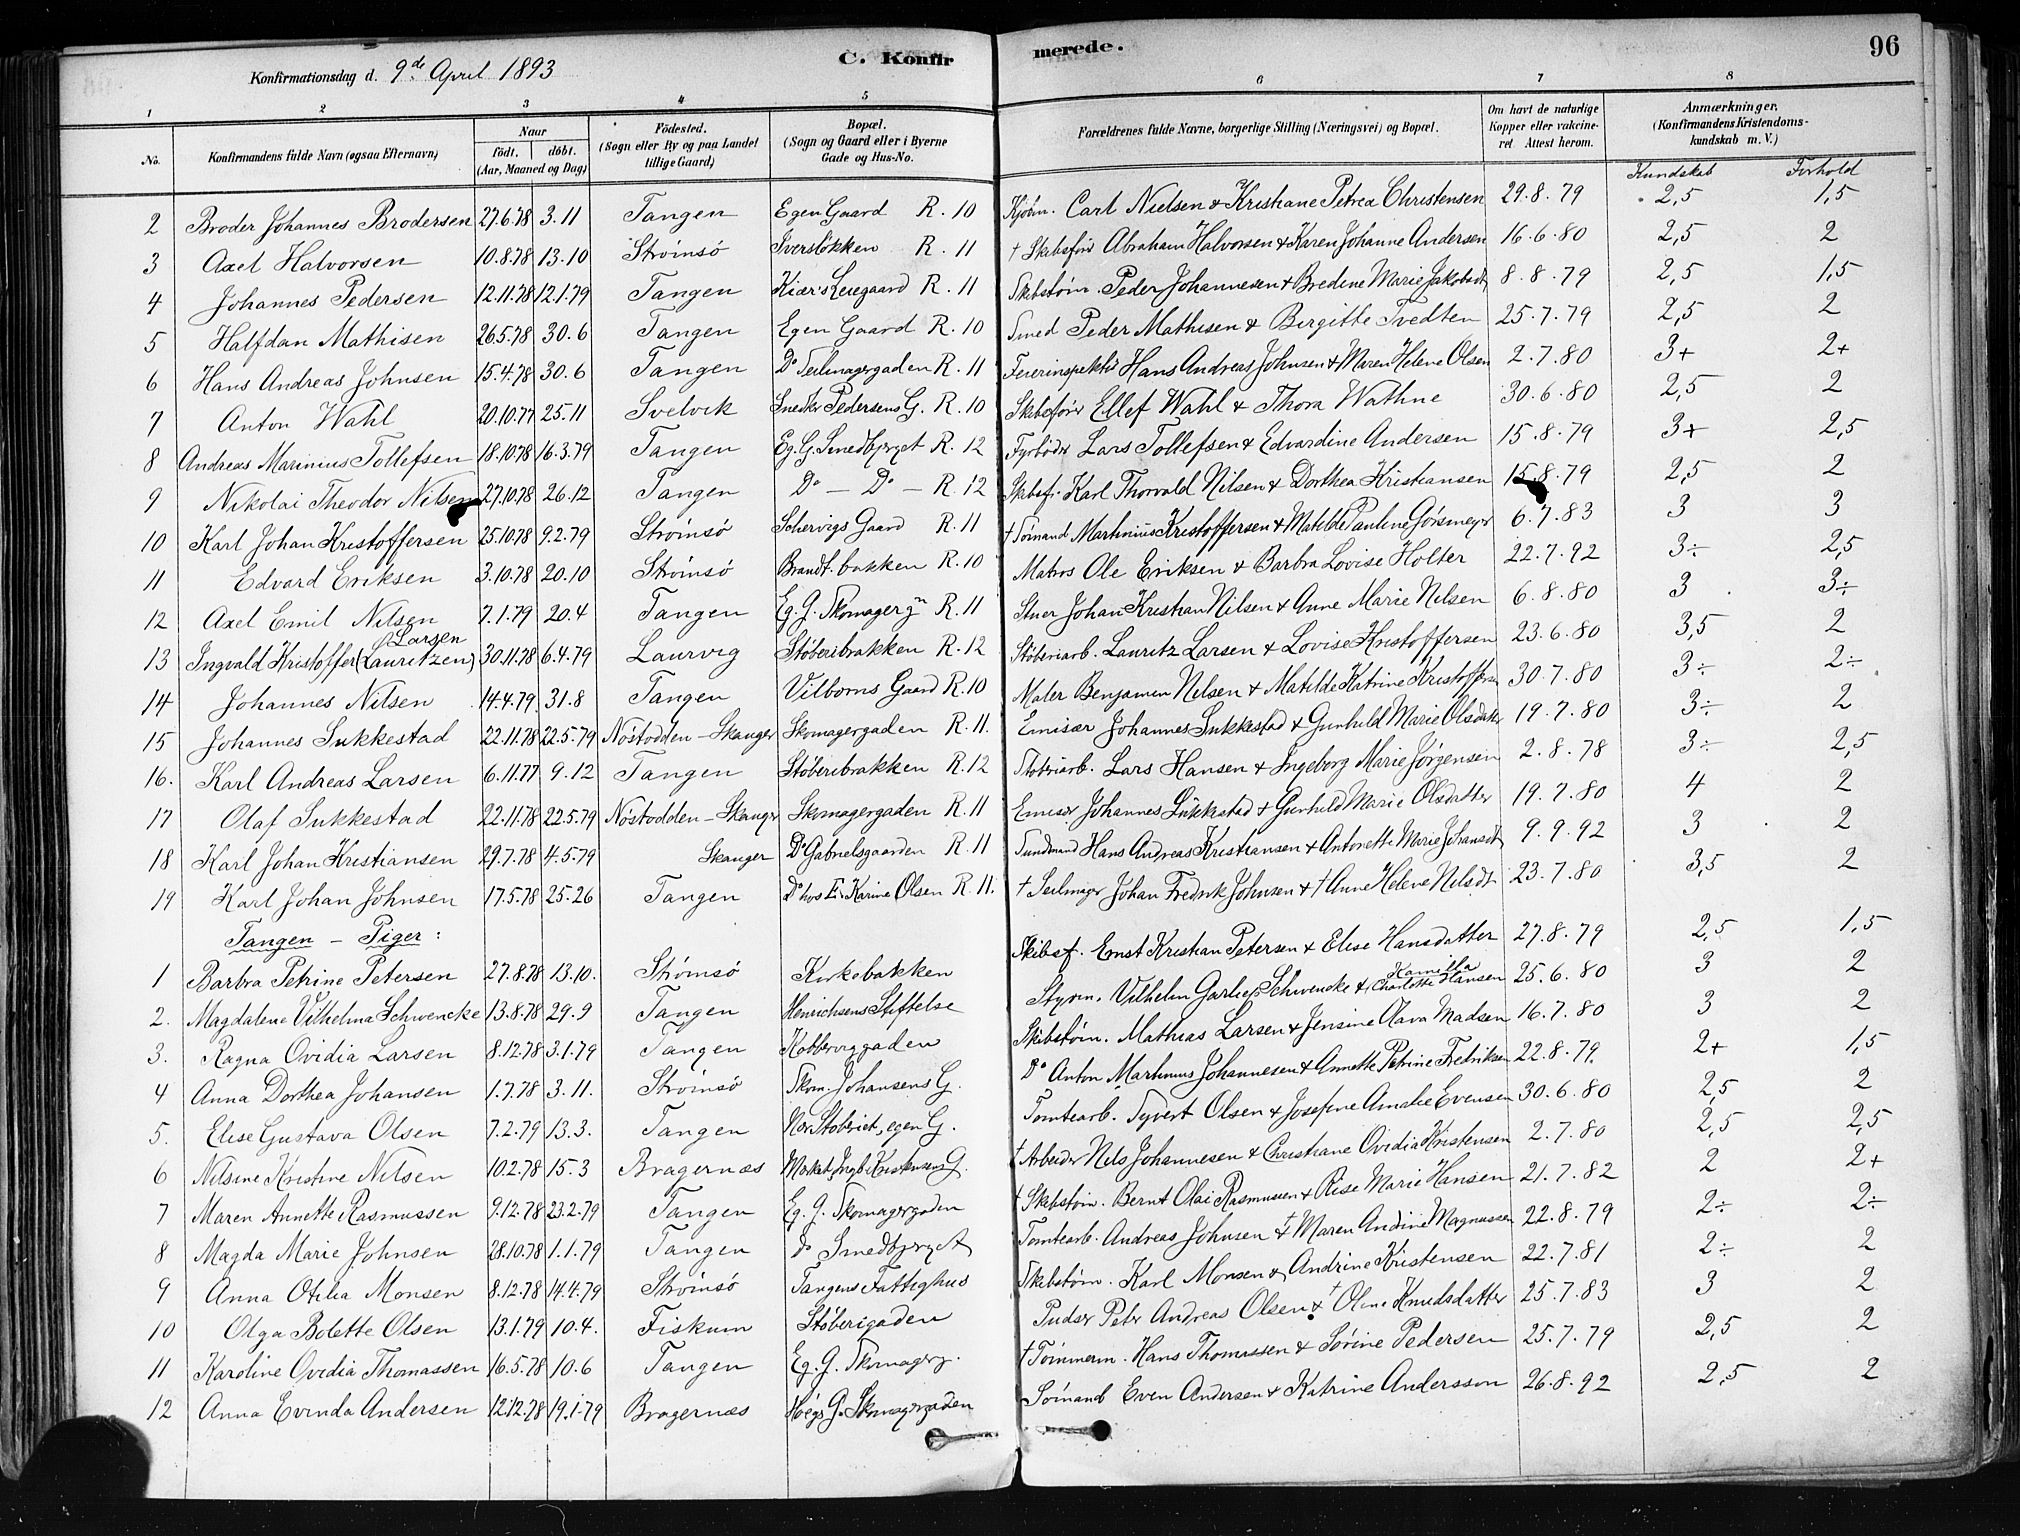 Konfirmationsdag d. 9de April 1893 C. Konfirmerede. 96
1 2 3 4 5 6 7 8
No. Konfirmandens fulde Navn (ogsaa Efternavn) Naar födt. döbt. (Aar, Maaned og Dag) Födested. (Sogn eller By og paa Landet tillige Gaard) Bopæl. (Sogn og Gaard eller i Byerne Gade og Hus-No. Forældrenes fulde Navne, borgerlige Stilling (Næringsvei) og Bopæl. Om havt de naturlige Kopper eller vakcineret Attest herom. Anmærkninger. (Konfirmandens Kristendomskundskab m. V.)
Kundskab Forhold
2 Broder Johannes Brodersen 27.6.78 3.11 Tangen Egen Gaard R. 10 Kjøbm. Carl Nielsen & Kristiane Petrea Christensen 29.8.79 2,5 1,5
3 Axel Halvorsen 10.8.78 13.10 Strömsö Iversløkken R. 11 † Skibsfør Abraham Halvorsen & Karen Johanne Andersen 16.6.80 2,5 2
4 Johannes Pedersen 12.11.78 12.1.79 Tangen Kiærs Leiegaard R. 11 Skibstøm. Peder Johannesen & Bredine Marie Jakobsdt 8.8.79 2,5 1,5
5 Halfdan Mathisen 26.5.78 30.6 Tangen Egen Gaard R. 10 Smed Peder Mathisen & Birgitte Tvedten 25.7.79 2,5 2
6 Hans Andreas Johnsen 15.4.78 30.6 Tangen Do Seilmagergaden R. 11 Feierinspektør Hans Andreas Johnsen & Maren Helene Olsen 2.7.80 3+ 2+
7 Anton Wahl 20.10.77 25.11 Svelvik Snedkr Pedersens G. R. 10 Skibsfører Ellef Wahl & Thora Wathne 30.6.80 2,5 2
8 Andreas Marinius Tollefsen 18.10.78 16.3.79 Tangen Eg. G. Smedbjerget R. 12 Fyrbøder Lars Tollefsen & Edvardine Andersen 15.8.79 3+ 2,5
9 Nikolai Theodor Nilsen 27.10.78 26.12 Tangen Do — Do — R. 12 Skibsf. Karl Thorvald Nilsen & Dorthea Kristiansen 15.8.79 2,5 2
10 Karl Johan Kristoffersen 25.10.78 9.2.79 Strömsö Schervigs Gaard R. 11 † Sømand Martinius Kristoffersen & Matilde Pauline Görsmeyer 6.7.83 3 3
11 Edvard Eriksen 3.10.78 20.10 Strömsö Brandt.bakken R. 10 Matros Ole Eriksen & Barbra Lovise Holter 22.7.92 3÷ 2,5
12 Axel Emil Nilsen 7.1.79 20.4 Tangen Eg. G. Skomagergn R. 11 Stuer Johan Kristian Nilsen & Anne Marie Nilsen 6.8.80 3 3÷
Larsen
13 Ingvald Kristoffer (Lauritzen) 30.11.78 6.4.79 Laurvig Støberibrakken R. 12 Støberiarb. Lauritz Larsen & Lovise Kristoffersen 23.6.80 3,5 2
14 Johannes Nilsen 14.4.79 31.8 Tangen Vilborns Gaard R. 10 Maler Benjamin Nilsen & Matilde Katrine Kristoffersen 30.7.80 3÷ 2÷
15 Johannes Sukkestad 22.11.78 22.5.79 Nöstodden - Skauger Skomagergaden R. 11. Emisær Johannes Sukkestad & Gunhild Marie Olsdatter 19.7.80 3÷ 2
16. Karl Andreas Larsen 6.11.77 9.12 Tangen Støberibrakken R. 12 Støberiarb. Lars Hansen & Ingeborg Marie Jörgensen 2.8.78 3÷ 2,5
17 Olaf Sukkestad 22.11.78 22.5.79 Nöstodden - Skauger Skomagergaden R. 11 Emisær Johannes Sukkestad & Gunhild Marie Olsdatter 19.7.80 4 2
18 Karl Johan Kristiansen 29.7.78 4.5.79 Skauger Do Gabrielsgaarden R. 11 Sundmand Hans Andreas Kristiansen & Antonette Marie Johansdt 9.9.92 3 2
19 Karl Johan Johnsen 17.5.78 25.26 Tangen Do hos E. Karine Olsen R. 11. † Seilmager Johan Fredrik Johnsen & † Anne Helene Nilsdt 23.7.80 3,5 2
Tangen - Piger:
1 Barbra Petrine Petersen 27.8.78 13.10. Strømsö Kirkebakken Skibsf. Ernst Kristian Petersen & Elise Hansdatter 27.8.79 2,5 1,5
2. Magdalene Vilhelma Schwencke 13.8.78 29.9 Tangen Henrichsens Stiftelse Styrm. Vilhelm Garlieb Schwencke & Kamilla Charlotte Hansen 25.6.80 3 2
3. Ragna Ovidia Larsen 8.12.78 3.1.79 Tangen Kobberviggaden Skibstøm. Mathias Larsen & Jensine Olava Madsen 16.7.80 3 2
4 Anna Dorthea Johansen 1.7.78 3.11. Strømsö Skom. Johansens G. Do Anton Martinius Johannesen & Annette Petrine Fredriksen 22.8.79. 2+ 1,5
5. Elise Gustava Olsen 7.2.79 13.3. Tangen Nær Støberiet, egen G. Tomtearb. Syvert Olsen & Josefine Amalie Evensen 30.6.80 2,5 2
6 Nilsine Kristine Nilsen 10.2.78 15.3 Bragernæs † Arbeider Nils Johannesen & Christiane Ovidia Kristensen 2.7.80 2,5 2,5
7 Maren Annette Rasmussen 9.12.78 23.2.79 Tangen Eg. G. Skomagergaden † Skibstøm. Bernt Olai Rasmussen & Rise Marie Hansen 21.7.82 2 2+
8 Magda Marie Johnsen 28.10.78 1.1.79 Tangen do Smedbjerget Tomtearb. Andreas Johnsen & † Maren Andine Magnussen 22.8.79 2÷ 2÷
9 Anna Otilia Monsen 8.12.78 14.4.79 Strömsö Tangens Fattighus Skibstøm. Karl Monsen & Andrine Kristensen 22.7.81 2÷ 2
10 Olga Bolette Olsen 13.1.79 10.4. Fiskum Støberigaden Pudser Peter Andreas Olsen & † Oline Knudsdatter 25.7.83 3 2
11 Karoline Ovidia Thomassen 16.5.78 10.6 Tangen Eg. G. Skomagerg. † Tömmerm. Hans Thomassen & Sörine Pedersen 25.7.79 2,5 2
12 Anna Evinda Andersen 12.12.78 19.1.79 Bragernæs Høegs G. Skomagergaden Sömand Even Andersen & Katrine Andersson 26.8.92 2,5 2